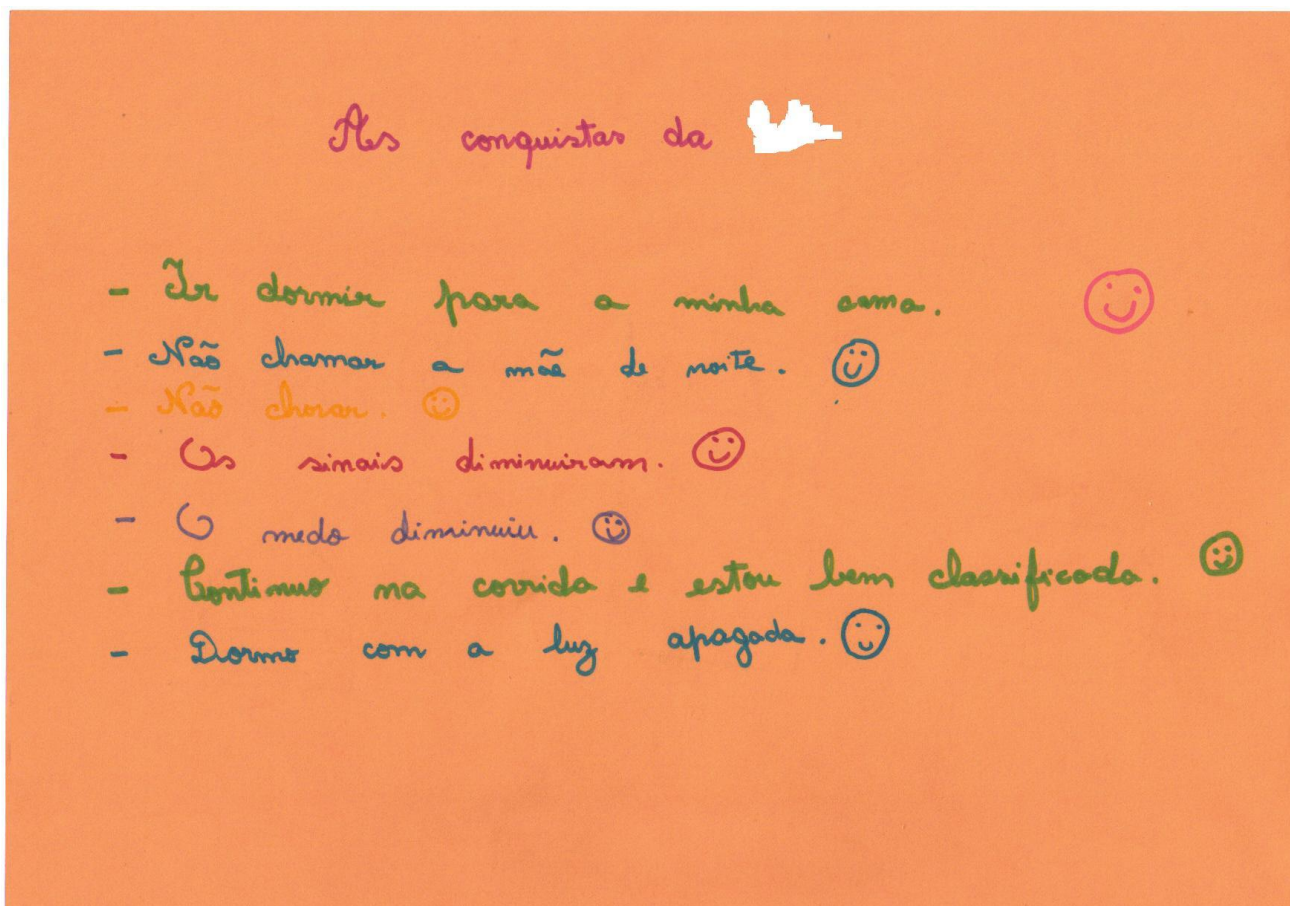 As conquistas da
- Ir dormir para a minha cama.
- Não chamar a mãe de noite.
- Não chorar.
- Os sinais diminuiram.
- O medo diminuiu.
- Continuo na corrida e estou bem classificada.
- Dormo com a luz apagada.